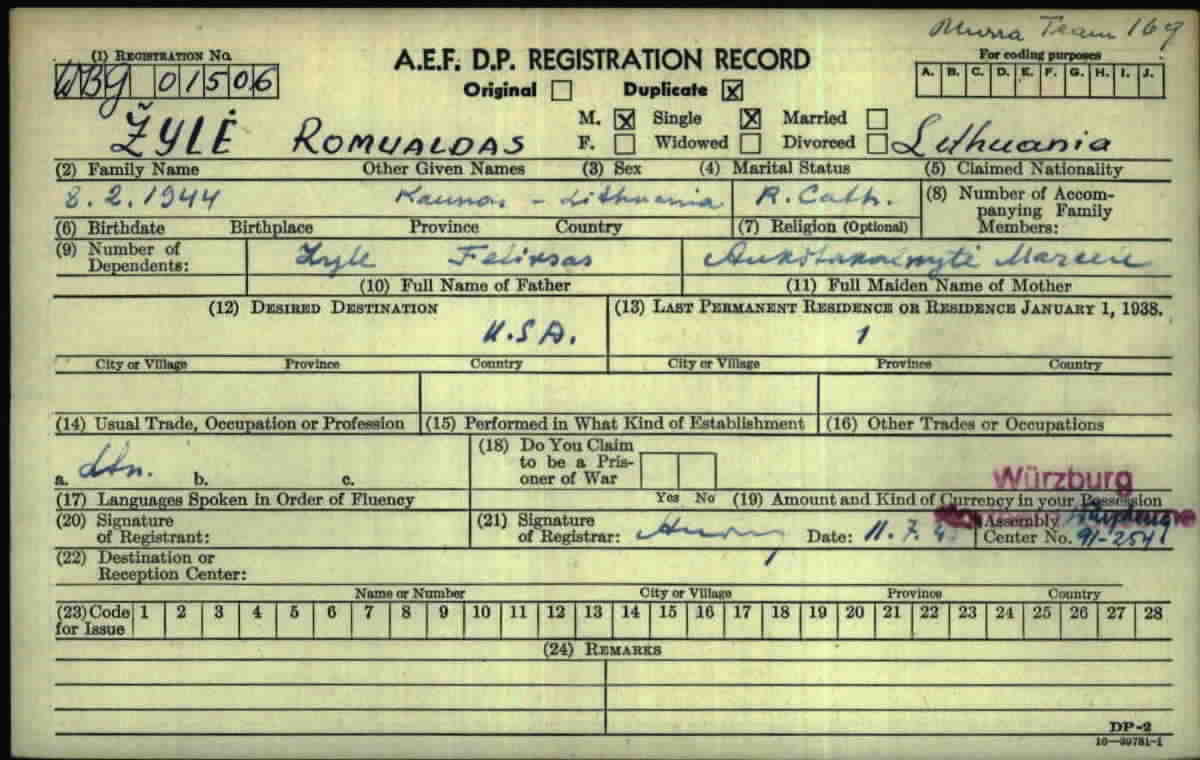 Team 169
(1) Registration No.
A.E.F. D.P. REGISTRATION RECORD
For coding purposes
WBG 01506
Original Duplicate X
A. B. C. D. E. F. G. H. I. J.
M. X Single X Married
ŽYLĖ ROMUALDAS
F. Widowed Divorced
Lithuania
(2) Family Name Other Given Names (3) Sex (4) Marital Status (5) Claimed Nationality
8.2.1944 Kaunas - Lithuania R. Cath.
(8) Number of Accompanying Family Members:
(6) Birthdate Birthplace Province Country (7) Religion (Optional)
(9) Number of Dependents:
Zyle Feliksas
(10) Full Name of Father (11) Full Maiden Name of Mother
(12) Desired Destination (13) Last Permanent Residence or Residence January 1, 1938.
U.S.A. 1
City or Village Province Country City or Village Province Country
(14) Usual Trade, Occupation or Profession (15) Performed in What Kind of Establishment (16) Other Trades or Occupations
(18) Do You Claim to be a Prisoner of War
a. b. c.
Würzburg
Yes No
(17) Languages Spoken in Order of Fluency (19) Amount and Kind of Currency in your Possession
(20) Signature of Registrant:
(21) Signature of Registrar:
Date: 11.7.
Assembly Center No. 91-254
(22) Destination or Reception Center:
Name or Number City or Village Province Country
(23) Code for Issue 1 2 3 4 5 6 7 8 9 10 11 12 13 14 15 16 17 18 19 20 21 22 23 24 25 26 27 28
(24) Remarks
DP-2
16—39781-1